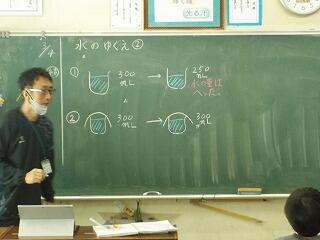 3/4
水のゆくえ②
① 300mL → 250mL
水の量はへった。
② 300mL → 300mL